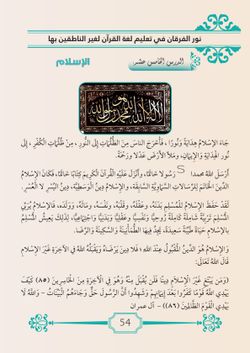 نور الفرقان في تعليم لغة القرآن لغير الناطقين بها
الدرس الخامس عشر
الإسلام
لا إله إلا الله محمد رسول الله
جَاءَ الإِسْلَامُ هِدَايَةً وَنُورًا، فَأَخْرَجَ النَّاسَ مِنَ الظُّلُمَاتِ إِلَى النُّورِ، مِنْ ظُلُمَاتِ الْكُفْرِ، إِلَى
نُورِ الْهِدَايَةِ وَالإِيْمَانِ، وَمَلَأَ الأَرْضَ عَدْلًا وَرَحْمَةً.
أَرْسَلَ اللهُ محمدا S رَسُولًا خَاتَمًا، وَأَنْزَلَ عَلَيْهِ الْقُرْآنَ الْكَرِيمَ كِتَابًا خَاتَمًا، فَكَانَ الإِسْلَامُ
الدِّينَ الْخَاتَمَ لِلرِّسَالَاتِ السَّمَاوِيَّةِ السَّابِقَةِ، وَالإِسْلَامُ دِينُ الْوَسَطِيَّةِ، دِينُ الْيُسْرِ لَا الْعُسْرِ.
لَقَدْ حَفِظَ الإِسْلَامُ لِلْمُسْلِمِ بَدَنَهُ، وَعَقْلَهُ، وَقَلْبَهُ، وَنَفْسَهُ، وَمَالَهُ، وَوَلَدَهُ، فَالإِسْلَامُ يُرَبِّي
الْمُسْلِمَ تَرْبِيَةً شَامِلَةً كَامِلَةً رُوحِيًّا وَنَفْسِيًّا وَعَقْلِيًّا وَبَدَنِيًّا وَاجْتِمَاعِيًّا، لِذَلِكَ يَعِيشُ الْمُسْلِمُ
بِالإِسْلَامِ حَيَاةً طَيِّبَةً سَعِيدَةً، يَجِدُ فِيهَا الطُّمَأْنِينَةَ وَالسَّكِينَةَ وَالرِّضَا.
وَالإِسْلَامُ هُوَ الدِّينُ الْمَقْبُولُ عِنْدَ اللهِ ؛ فَلَا دِينَ يَرْضَاهُ وَيَقْبَلُهُ اللهُ فِي الآخِرَةِ غَيْرَ الإِسْلَامِ
قَالَ اللهُ تَعَالَى:
(وَمَن يَبْتَغِ غَيْرَ الْإِسْلَامِ دِينًا فَلَن يُقْبَلَ مِنْهُ وَهُوَ فِي الْآخِرَةِ مِنَ الْخَاسِرِينَ (٨٥) كَيْفَ
يَهْدِي اللَّهُ قَوْمًا كَفَرُوا بَعْدَ إِيمَانِهِمْ وَشَهِدُوا أَنَّ الرَّسُولَ حَقٌّ وَجَاءَهُمُ الْبَيِّنَاتُ - وَاللَّهُ لَا
يَهْدِي الْقَوْمَ الظَّالِمِينَ (٨٦)) – آل عمران
54